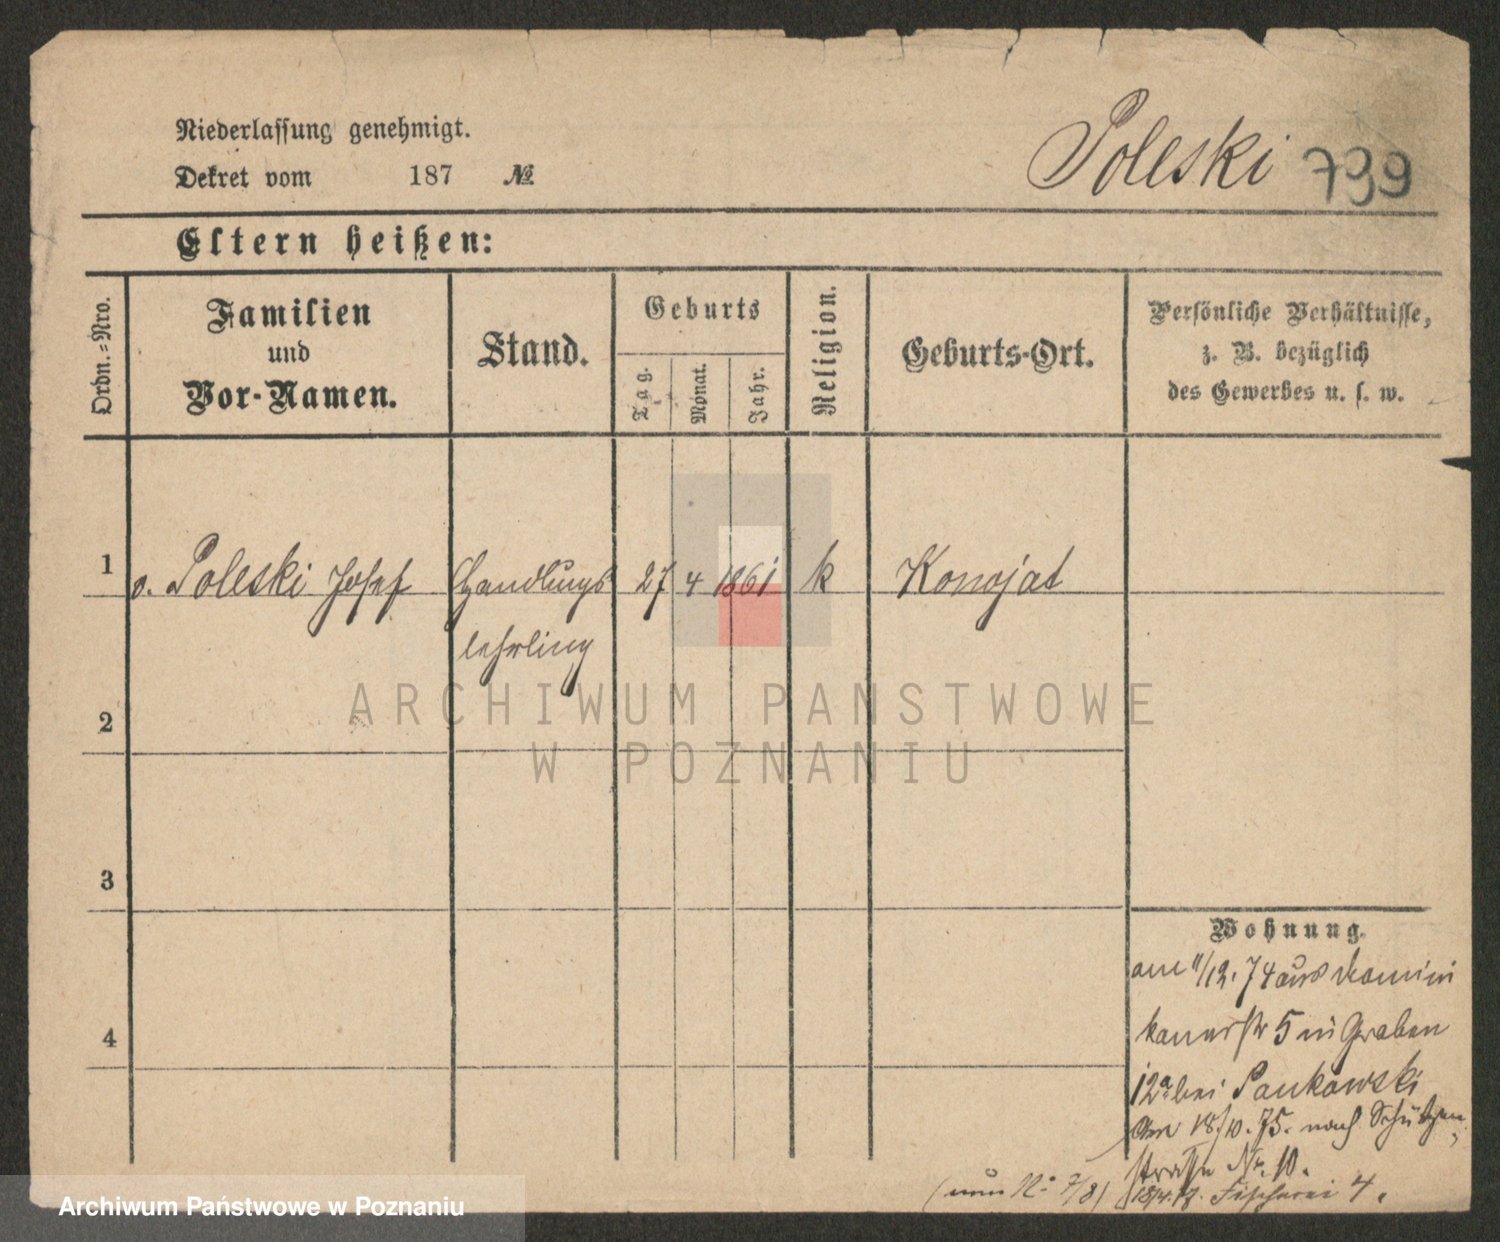 Niederlassung genehmigt.
Dekret vom 187 №
Poleski 739
Eltern heißen:
Ordn.-Nro.
Familien
und
Vor-Namen.
Stand.
Geburts
Tag.
Monat.
Jahr.
Religion.
Geburts-Ort.
Persönliche Verhältnisse,
z. B. bezüglich
des Gewerbes u. s. w.
1
v. Poleski Josef
Handlungs
lehrling
27 4 1861
k
Konojat
2
3
4
Wohnung.
am 11/12. 74 aus Domini
kanerstr 5 in Graben
12a bei Pankowski
Am 18/10. 75. nach Schützen
straße Nr. 10.
(nun No 7/8) Fischerei 4.
ARCHIWUM PAŃSTWOWE
W POZNANIU
Archiwum Państwowe w Poznaniu